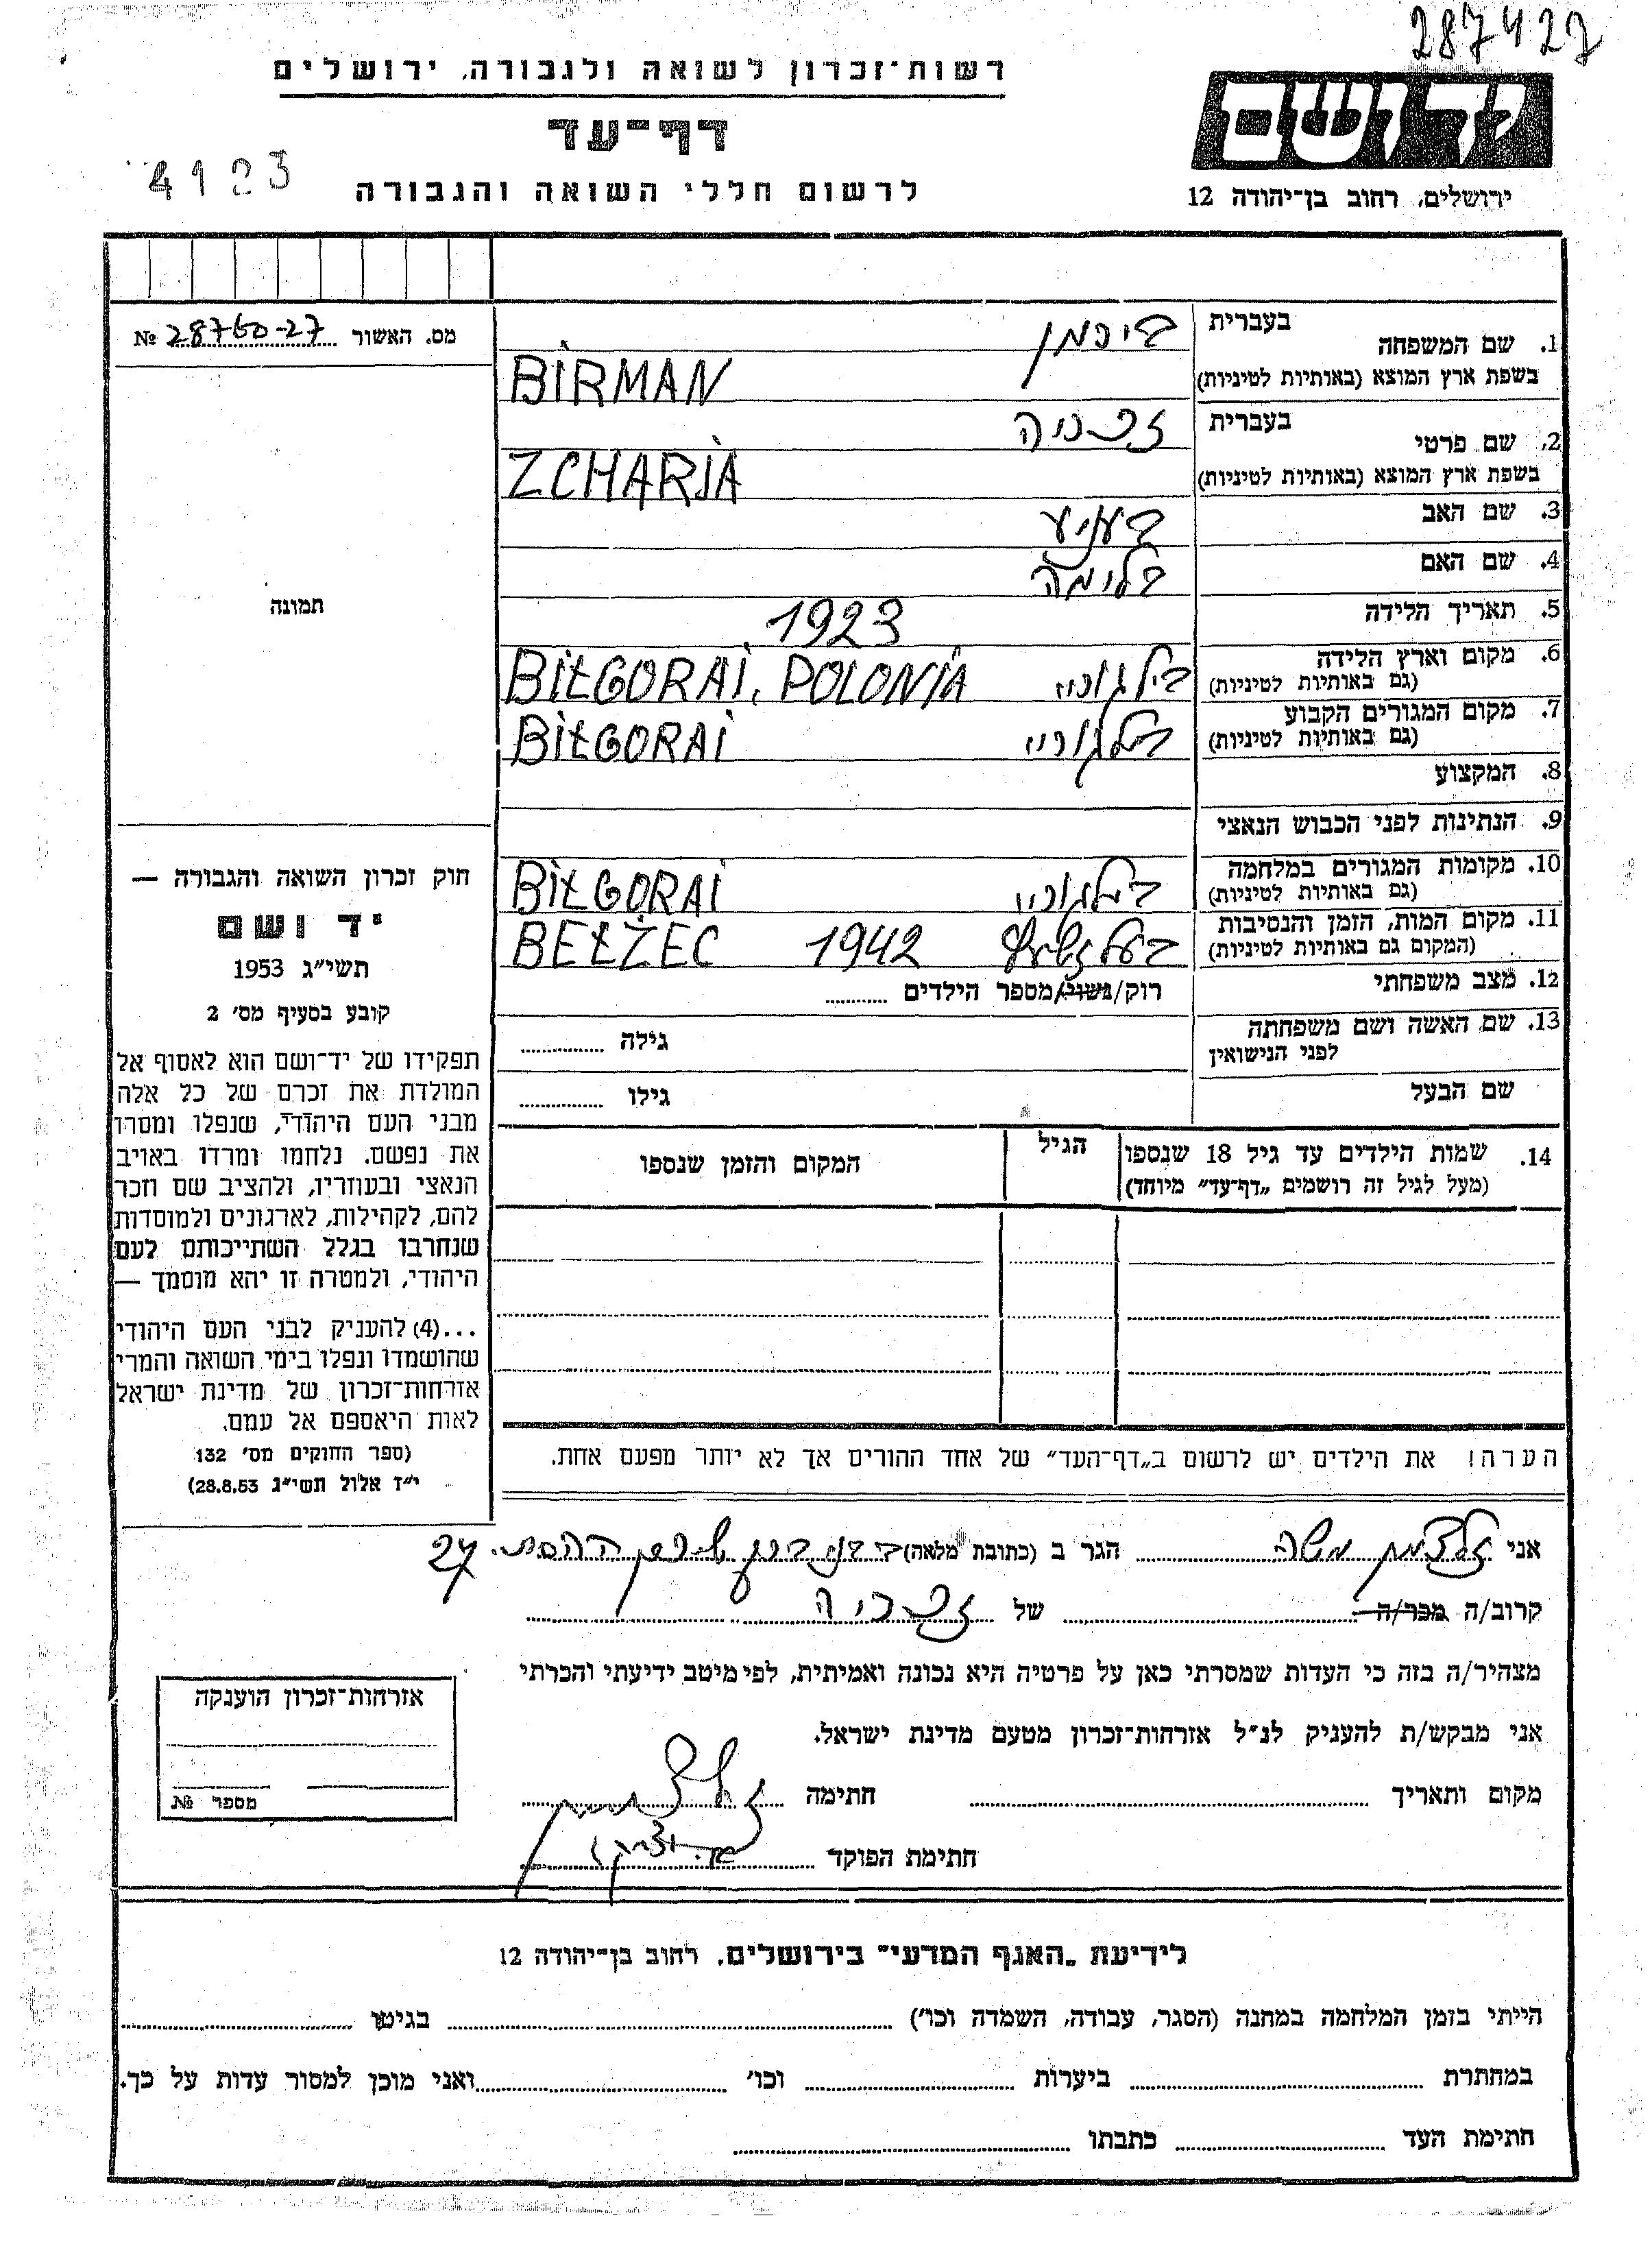 287427
רשות־זכרון לשואה ולגבורה, ירושלים
יד ושם
דף־עד
4123
לרשום חללי השואה והגבורה
ירושלים, רחוב בן־יהודה 12
מס. האשור 28760-27 №
1. שם המשפחה
בעברית
בירמן
בשפת ארץ המוצא (באותיות לטיניות)
BIRMAN
2. שם פרטי
בעברית
זכריה
בשפת ארץ המוצא (באותיות לטיניות)
ZCHARJA
3. שם האב
4. שם האם
בלימה
5. תאריך הלידה
1923
6. מקום וארץ הלידה
(גם באותיות לטיניות)
בילגורײ
BIŁGORAI, POLONIA
7. מקום המגורים הקבוע
(גם באותיות לטיניות)
בילגורײ
BIŁGORAI
8. המקצוע
9. הנתינות לפני הכבוש הנאצי
10. מקומות המגורים במלחמה
(גם באותיות לטיניות)
בילגורײ
BIŁGORAI
11. מקום המות, הזמן והנסיבות
(המקום גם באותיות לטיניות)
1942
BEŁŻEC
12. מצב משפחתי
רוק/נשוי/מספר הילדים
13. שם האשה ושם משפחתה
לפני הנישואין
גילה
שם הבעל
גילו
14. שמות הילדים עד גיל 18 שנספו
(מעל לגיל זה רושמים „דף־עד״ מיוחד)
הגיל
המקום והזמן שנספו
הערה! את הילדים יש לרשום ב„דף־העד״ של אחד ההורים אך לא יותר מפעם אחת.
תמונה
חוק זכרון השואה והגבורה —
יד ושם
תשי״ג 1953
קובע בסעיף מס׳ 2
תפקידו של יד־ושם הוא לאסוף אל
המולדת את זכרם של כל אלה
מבני העם היהודי, שנפלו ומסרו
את נפשם, נלחמו ומרדו באויב
הנאצי ובעוזריו, ולהציב שם וזכר
להם, לקהילות, לארגונים ולמוסדות
שנחרבו בגלל השתייכותם לעם
היהודי, ולמטרה זו יהא מוסמך —
...(4) להעניק לבני העם היהודי
שהושמדו ונפלו בימי השואה והמרי
אזרחות־זכרון של מדינת ישראל
לאות היאספם אל עמם.
(ספר החוקים מס׳ 132
י״ז אלול תשי״ג 28.8.53)
אני זלצמן משה הגר ב (כתובת מלאה) בני ברק 27
קרוב/ה מכר/ה של זכריה
מצהיר/ה בזה כי העדות שמסרתי כאן על פרטיה היא נכונה ואמיתית, לפי מיטב ידיעתי והכרתי
אני מבקש/ת להעניק לנ״ל אזרחות־זכרון מטעם מדינת ישראל.
מקום ותאריך חתימה זלצמן
חתימת הפוקד
אזרחות־זכרון הוענקה
מספר №
לידיעת „האגף המדעי״ בירושלים, רחוב בן־יהודה 12
הייתי בזמן המלחמה במחנה (הסגר, עבודה, השמדה וכו׳) בגיטו
במחתרת ביערות וכו׳ ואני מוכן למסור עדות על כך.
חתימת העד כתבתו